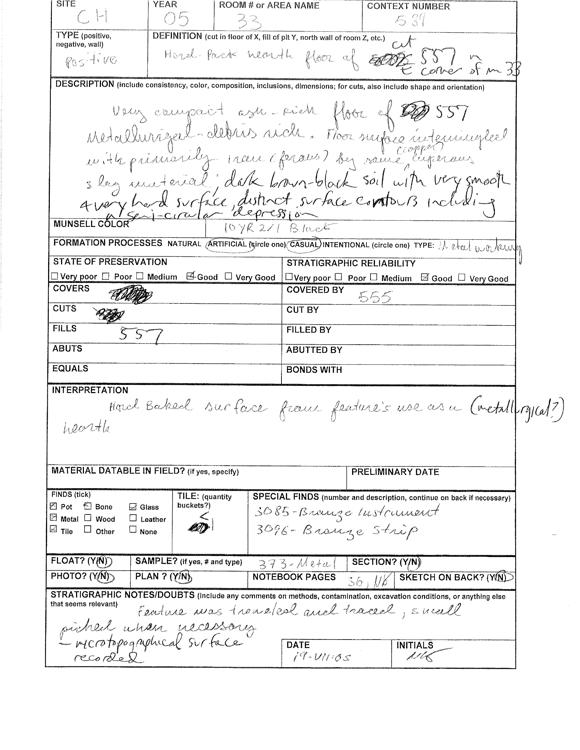 SITE CH YEAR 05 ROOM # or AREA NAME 33 CONTEXT NUMBER
TYPE (positive, negative, wall) Positive
DEFINITION (cut in floor of X, fill of pit Y, north wall of room Z, etc.)
Hard-Pack hearth floor of cut 557 in
E corner of rm 33
DESCRIPTION (include consistency, color, composition, inclusions, dimensions; for cuts, also include shape and orientation)
Very compact ash-rich floor of 557
Metallurgical-debris rich. Floor surface intermingled
with primarily iron (ferous?) by some cuperous (copper?)
slag material; dark brown-black soil with very smooth
& very hard surface, distinct surface contours including
a semi-circular depression
MUNSELL COLOR 10YR 2/1 Black
FORMATION PROCESSES NATURAL ARTIFICIAL (circle one) CASUAL INTENTIONAL (circle one) TYPE: Metal working
STATE OF PRESERVATION STRATIGRAPHIC RELIABILITY
☐ Very poor ☐ Poor ☐ Medium ☑ Good ☐ Very Good ☐ Very poor ☐ Poor ☐ Medium ☑ Good ☐ Very Good
COVERS COVERED BY 555
CUTS CUT BY
FILLS 557 FILLED BY
ABUTS ABUTTED BY
EQUALS BONDS WITH
INTERPRETATION
Hard Baked surface from feature's use as a (metallurgical?)
hearth
MATERIAL DATABLE IN FIELD? (if yes, specify) PRELIMINARY DATE
FINDS (tick)
☑ Pot ☑ Bone ☑ Glass
☑ Metal ☐ Wood ☐ Leather
☑ Tile ☐ Other ☐ None
TILE: (quantity buckets?)
<
SPECIAL FINDS (number and description, continue on back if necessary)
3085-Bronze Instrument
3096-Bronze Strip
FLOAT? (Y/N) SAMPLE? (if yes, # and type) 373-Metal SECTION? (Y/N)
PHOTO? (Y/N) PLAN ? (Y/N) NOTEBOOK PAGES 36, NK SKETCH ON BACK? (Y/N)
STRATIGRAPHIC NOTES/DOUBTS (Include any comments on methods, contamination, excavation conditions, or anything else that seems relevant)
Feature was troweled and traced, small
picked when necessary
- microtopographical surface
recorded
DATE 19-VII-05
INITIALS NK